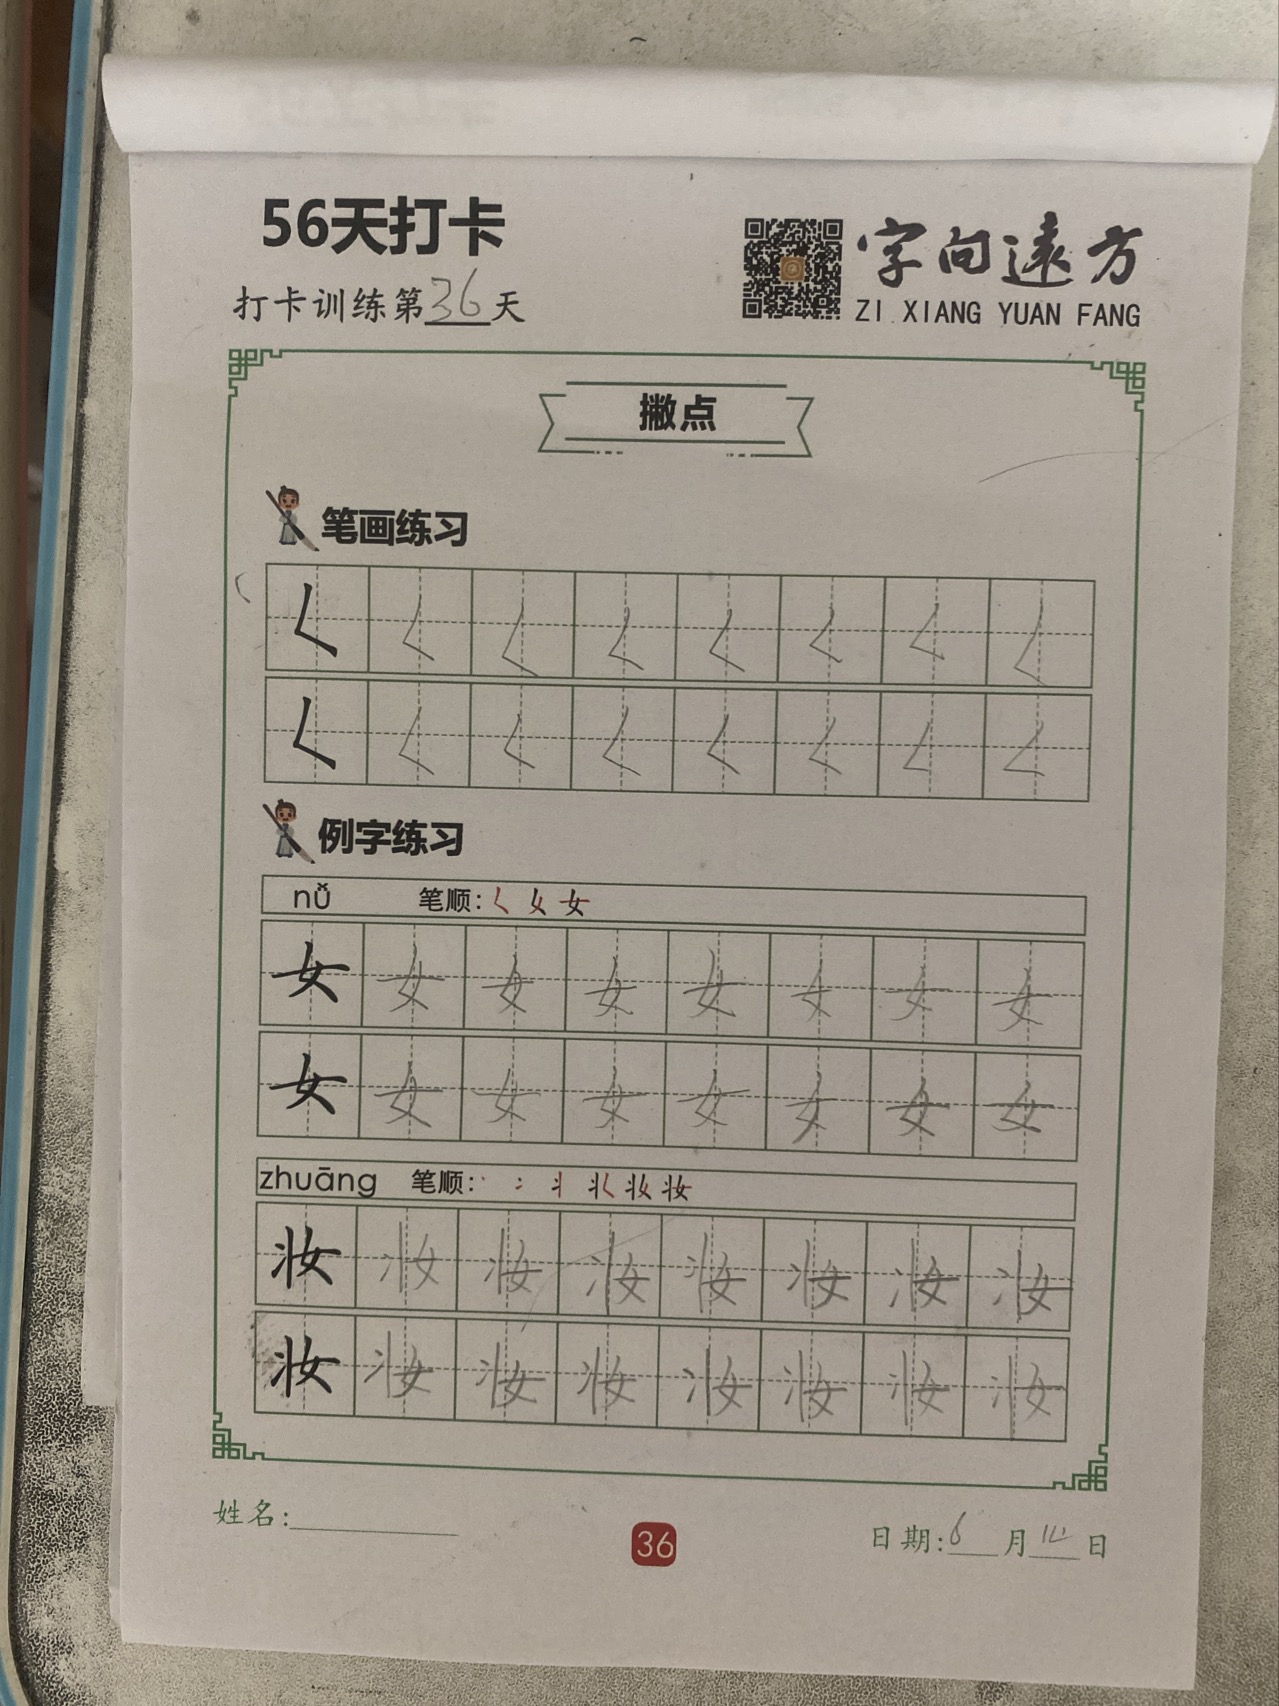 56天打卡
打卡训练第36天
字向远方
ZI XIANG YUAN FANG
撇点
笔画练习
𡿨 𡿨 𡿨 𡿨 𡿨 𡿨 𡿨 𡿨
𡿨 𡿨 𡿨 𡿨 𡿨 𡿨 𡿨 𡿨
例字练习
nǚ 笔顺: 𡿨 女 女
女 女 女 女 女 女 女 女
女 女 女 女 女 女 女 女
zhuāng 笔顺: 丶 冫 丬 妆 妆 妆
妆 妆 妆 妆 妆 妆 妆 妆
妆 妆 妆 妆 妆 妆 妆 妆
姓名:
36
日期: 6 月 日